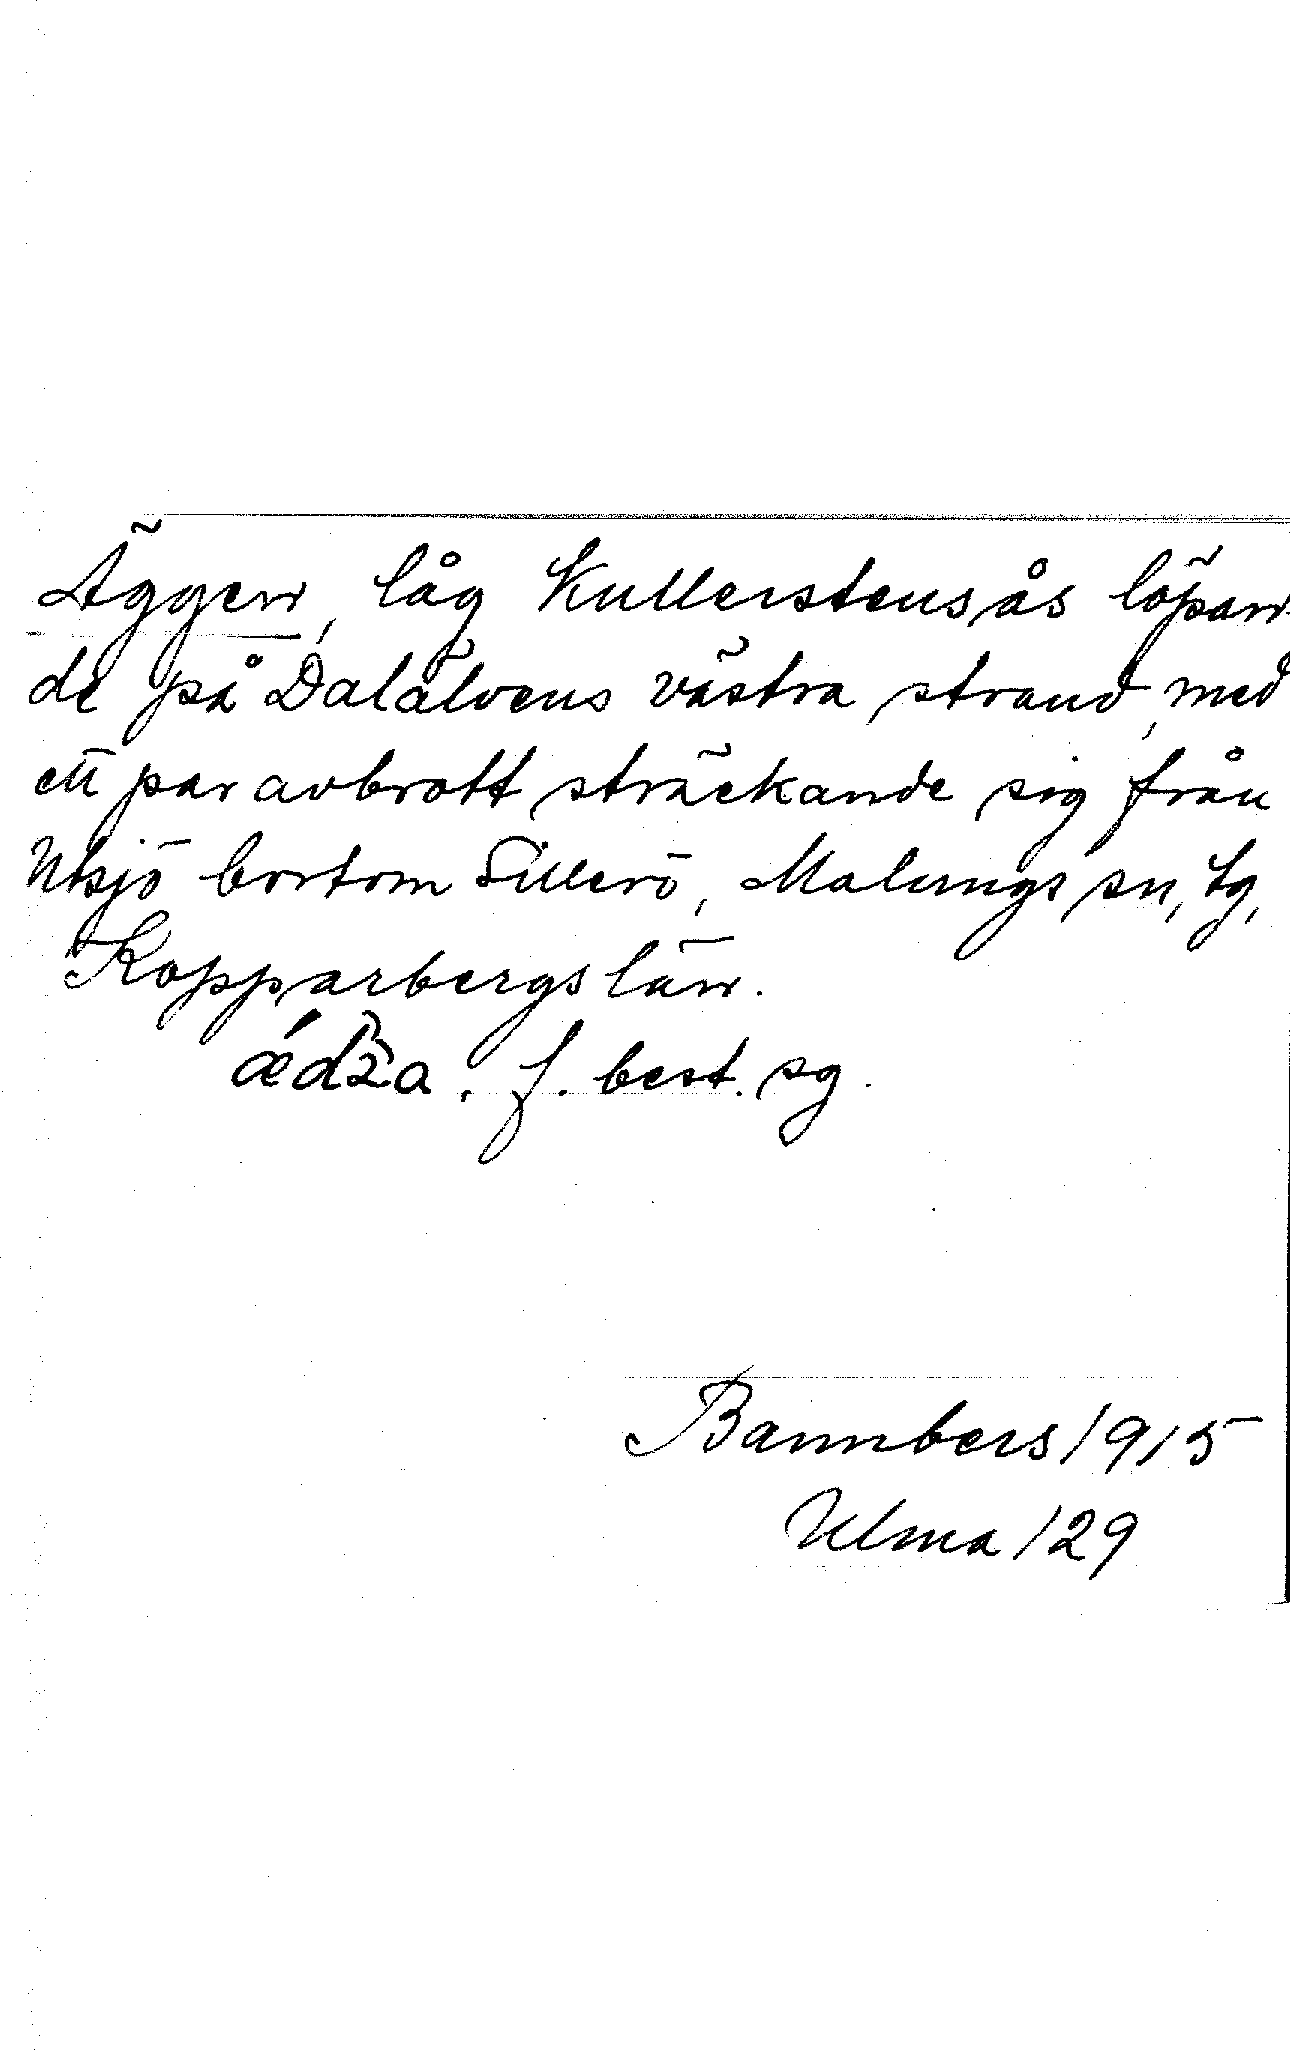 Äggen, låg Kullerstensås löpan-
de på Dalälvens västra strand, med
ett par avbrott sträckande sig från
Utsjö bortom Sillerö, Malungs sn, tg,
Kopparbergs län.
f. best. sg.
Bannbers 1915
Ulma 129